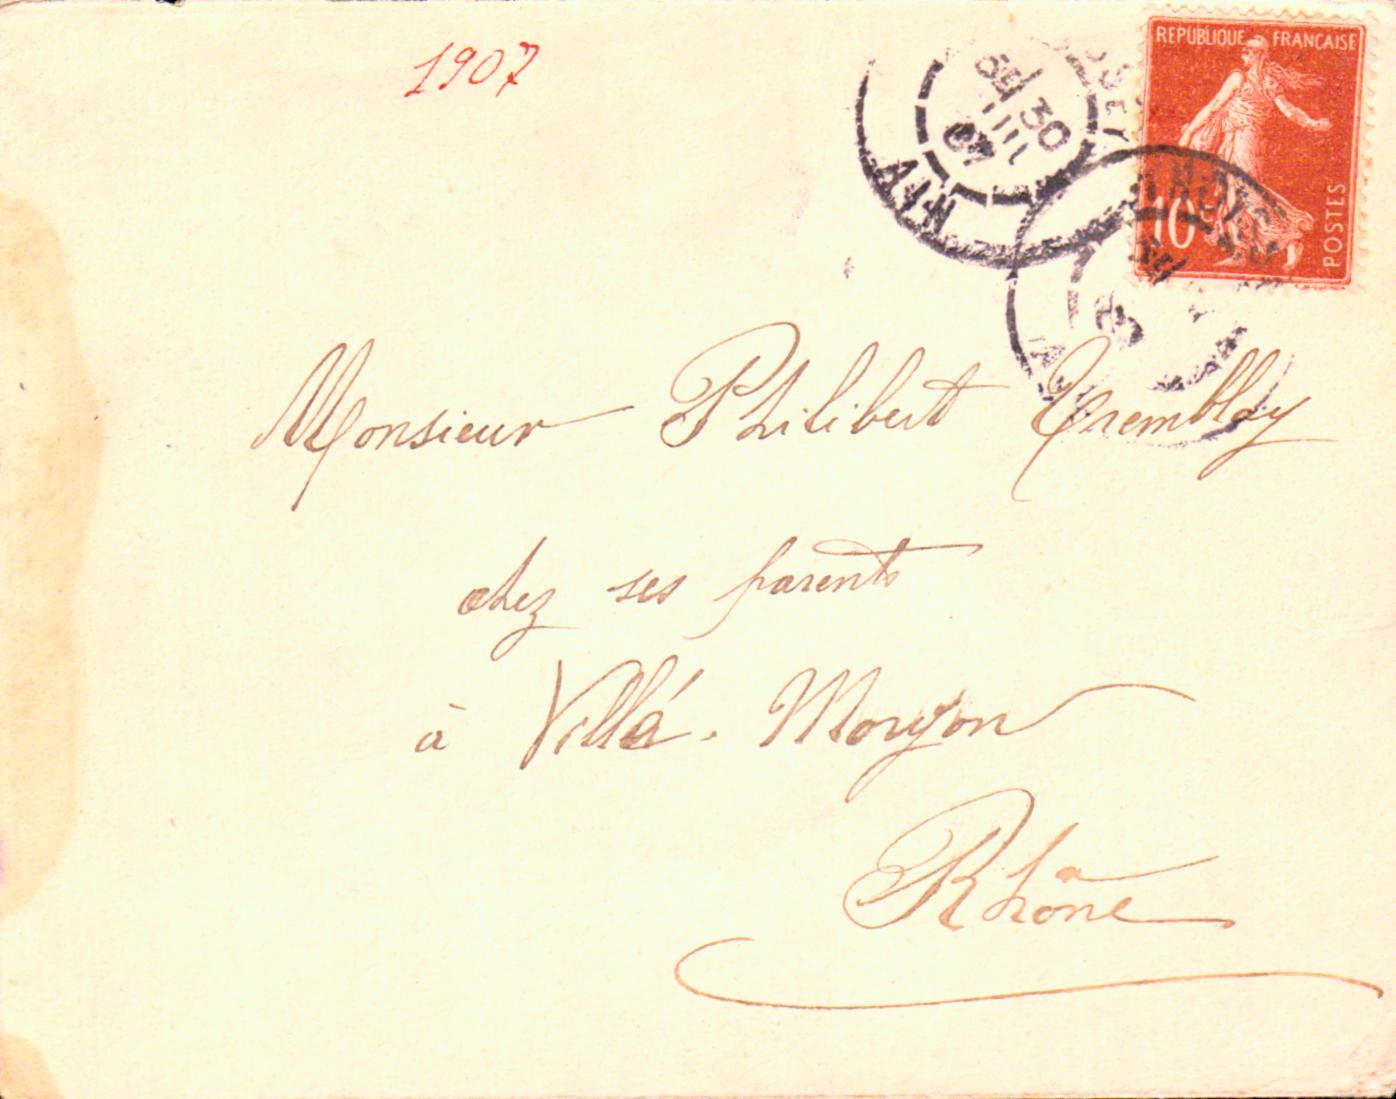 1907
REPUBLIQUE FRANÇAISE
10c
POSTES
30
07
AIN
Monsieur Philibert Tremblay
chez ses parents
à Villé-Morgon
Rhône